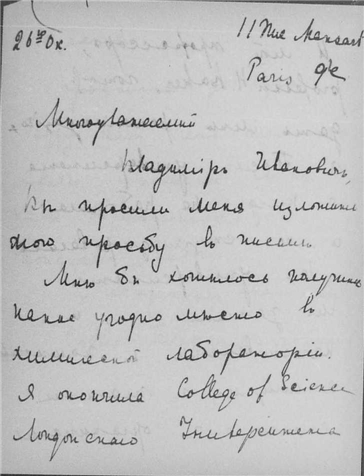 26го Ок.
11 Rue Mansart
Paris 9e
Многоуважаемый
Владимiръ Ивановичъ,
Вы просили меня изложить
мою просьбу въ письмѣ
Мнѣ бы хотѣлось получить
какое угодно мѣсто въ
химической лабораторiи.
Я окончила College of Science
Лондонскаго Университета